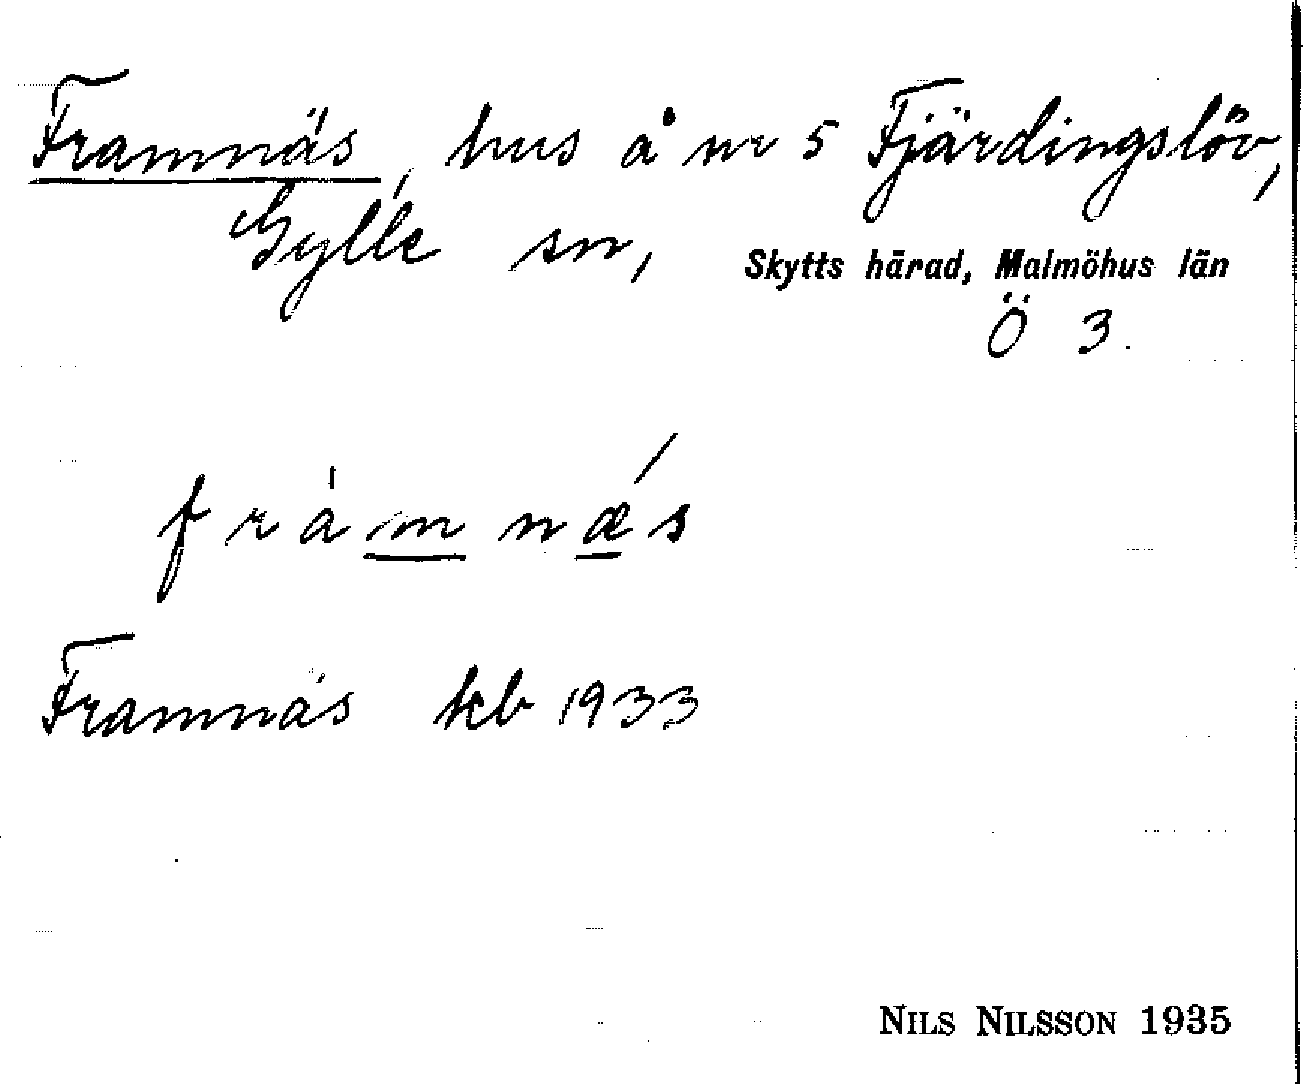 Framnäs, hus å nr 5 Fjärdingslöv,
Gylle sn, Skytts härad, Malmöhus län
Ö 3.
fràmnǽs
Framnäs kb 1933
NILS NILSSON 1935